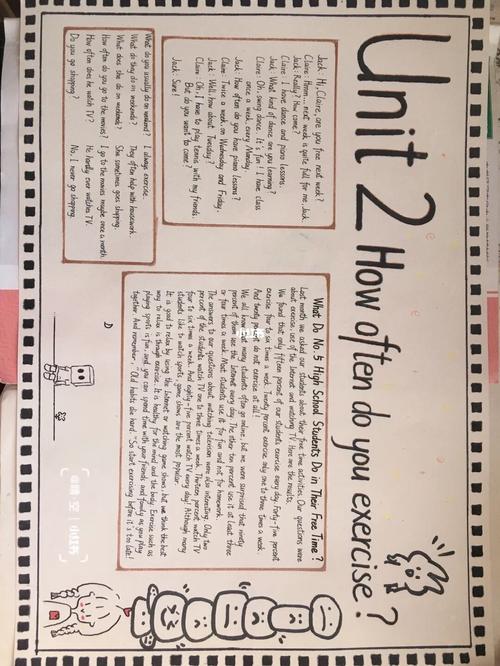 Unit 2 How often do you exercise?
Jack: Hi, Claire, are you free next week?
Claire: Hmm... next week is quite full for me, Jack.
Jack: Really? How come?
Claire: I have dance and piano lessons.
Jack: What kind of dance are you learning?
Claire: Oh, swing dance. It's fun! I have class
once a week, every Monday.
Jack: How often do you have piano lessons?
Claire: Twice a week, on Wednesday and Friday.
Jack: Well, how about Tuesday?
Claire: Oh, I have to play tennis with my friends.
But do you want to come?
Jack: Sure!
What do you usually do on weekend? I always exercise.
What do they do on weekends? They often help with housework.
What does she do on weekends? She sometimes goes shopping.
How often do you go to the movies? I go to the movies maybe once a month.
How often does he watch TV? He hardly ever watches TV.
Do you go shopping? No, I never go shopping.
What Do No. 5 High School Students Do in Their Free Time?
Last month we asked our students about their free time activities. Our questions were
about exercise, use of the Internet and watching TV. Here are the results.
We found that only fifteen percent of our students exercise every day. Forty-five percent
exercise four to six times a week. Twenty percent exercise only one to three times a week.
And twenty percent do not exercise at all!
We all know that many students often go online, but we were surprised that ninety
percent of them use the Internet every day. The other ten percent use it at least three
or four times a week. Most students use it for fun and not for homework.
The answers to our questions about watching television were also interesting. Only two
percent of the students watch TV one to three times a week. Thirteen percent watch TV
four to six times a week. And eighty-five percent watch TV every day! Although many
students like to watch sports, game shows are the most popular.
It is good to relax by using the Internet or watching game shows, but we think the best
way to relax is through exercise. It is healthy for the mind and the body. Exercise such as
playing sports is fun, and you can spend time with your friends and family as you play
together. And remember, "Old habits die hard." So start exercising before it's too late!
D
小红书